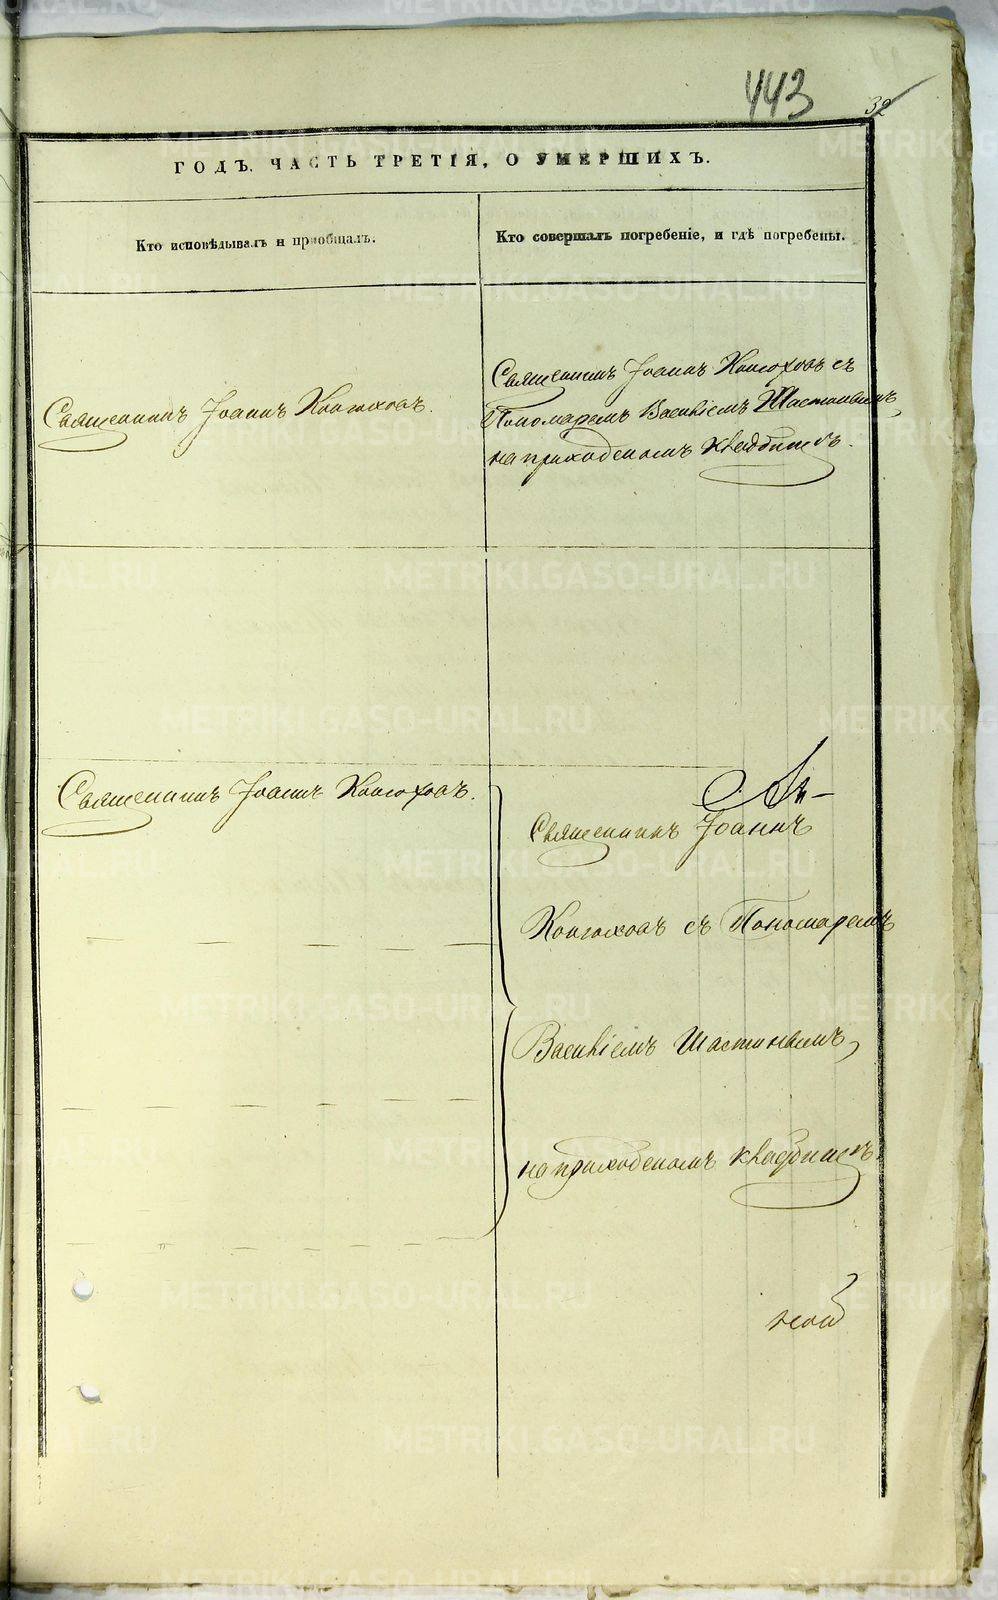 443
32
ГОДЪ. ЧАСТЬ ТРЕТІЯ, О УМЕРШИХЪ.
Кто исповѣдывалъ и пріобщалъ.
Кто совершалъ погребеніе, и гдѣ погребены.
Священникъ Іоаннъ
Священникъ Іоаннъ съ
Пономаремъ Василіемъ
на приходскомъ кладбищѣ.
Священникъ Іоаннъ
Священникъ Іоаннъ
съ Пономаремъ
Василіемъ
на приходскомъ кладбищѣ.
METRIKI.GASO-URAL.RU